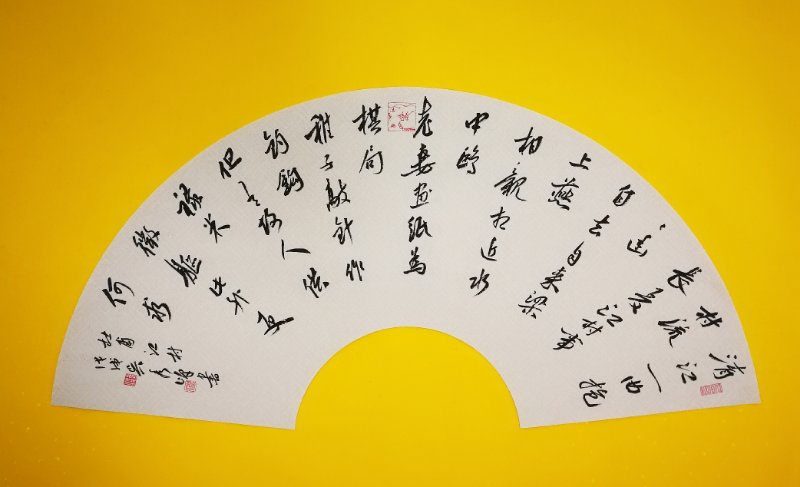 清江一曲抱
村流
長夏江村事
々幽
自去自来梁
上燕
相親相近水
中鸥
老妻画紙為
棋局
稚子敲針作
釣鈎
但有故人供
禄米
微軀此外更
何求
杜甫江村